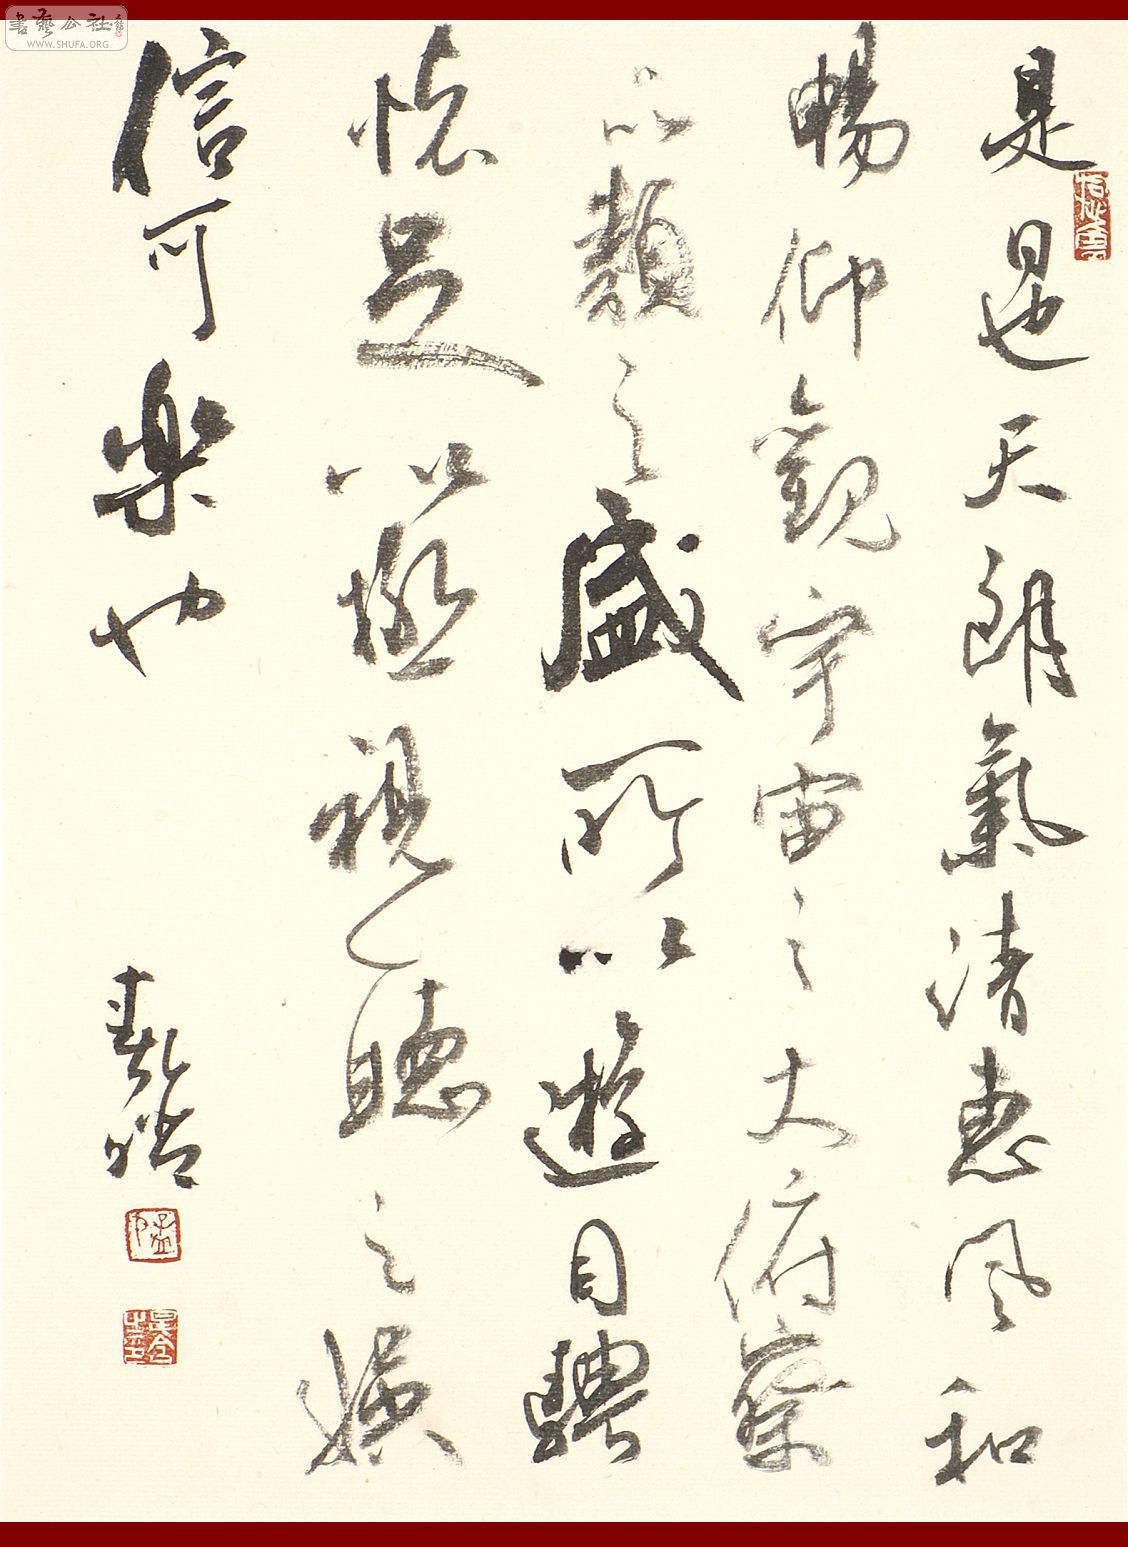 是日也天朗氣清惠風和
暢仰觀宇宙之大俯察
品類之盛所以遊目騁
懷足以極視聽之娛
信可樂也
書藝公社
WWW.SHUFA.ORG